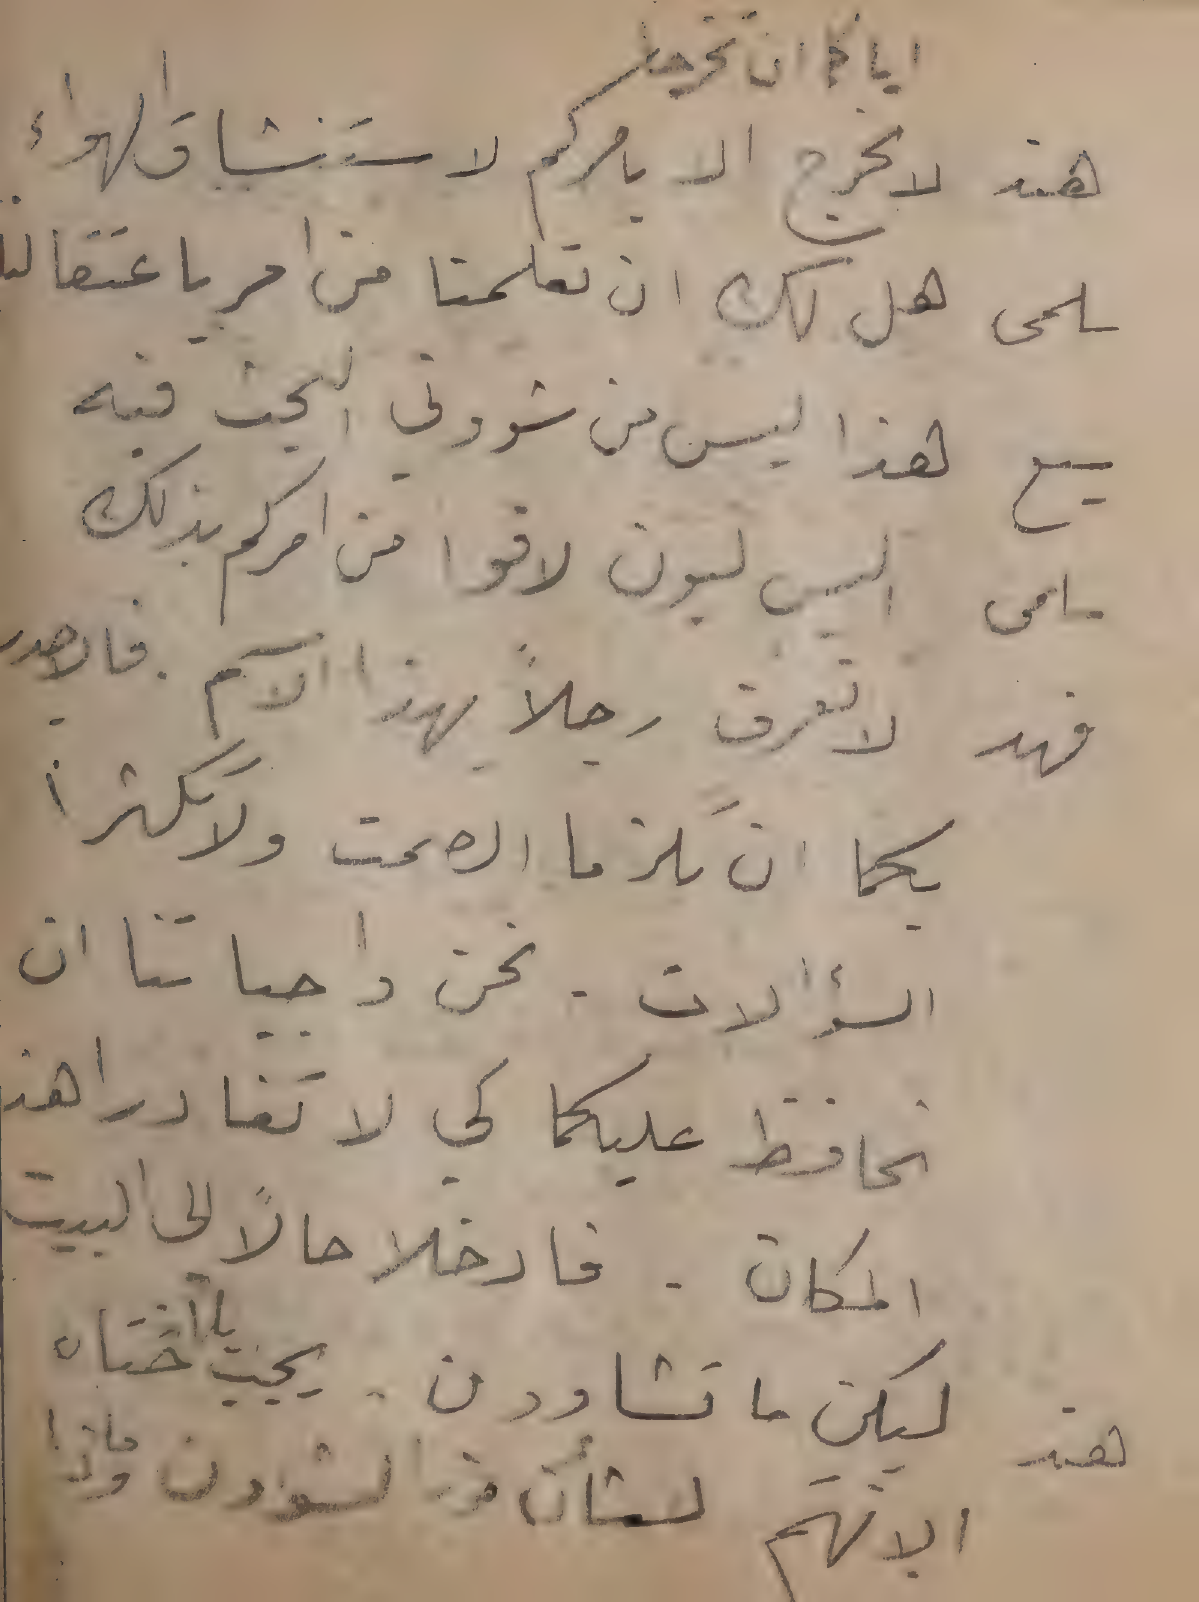 اياكما ان تخرجا
هند لا نخرج الا بامركم لاستنشاق الهواء
سلمى هل لك ان تعلمنا من امر باعتقالنا
سبع هذا ليس من شووني البحث فيه
سلمى اليس ليون لافوا من امركم بذلك
فهد لا نعرف رجلاً بهذا الاسم . فالاجدر
بكما ان تلزما الصمت ولا تكثرا
السؤالات . نحن واجباتنا ان
نحافظ عليكما كي لا تغادرا هذا
المكان . فادخلا حالاً الى البيت
هند ليكن ما تشاوون . يجب يا اختاه
الا نهتم لشأن من الشوون